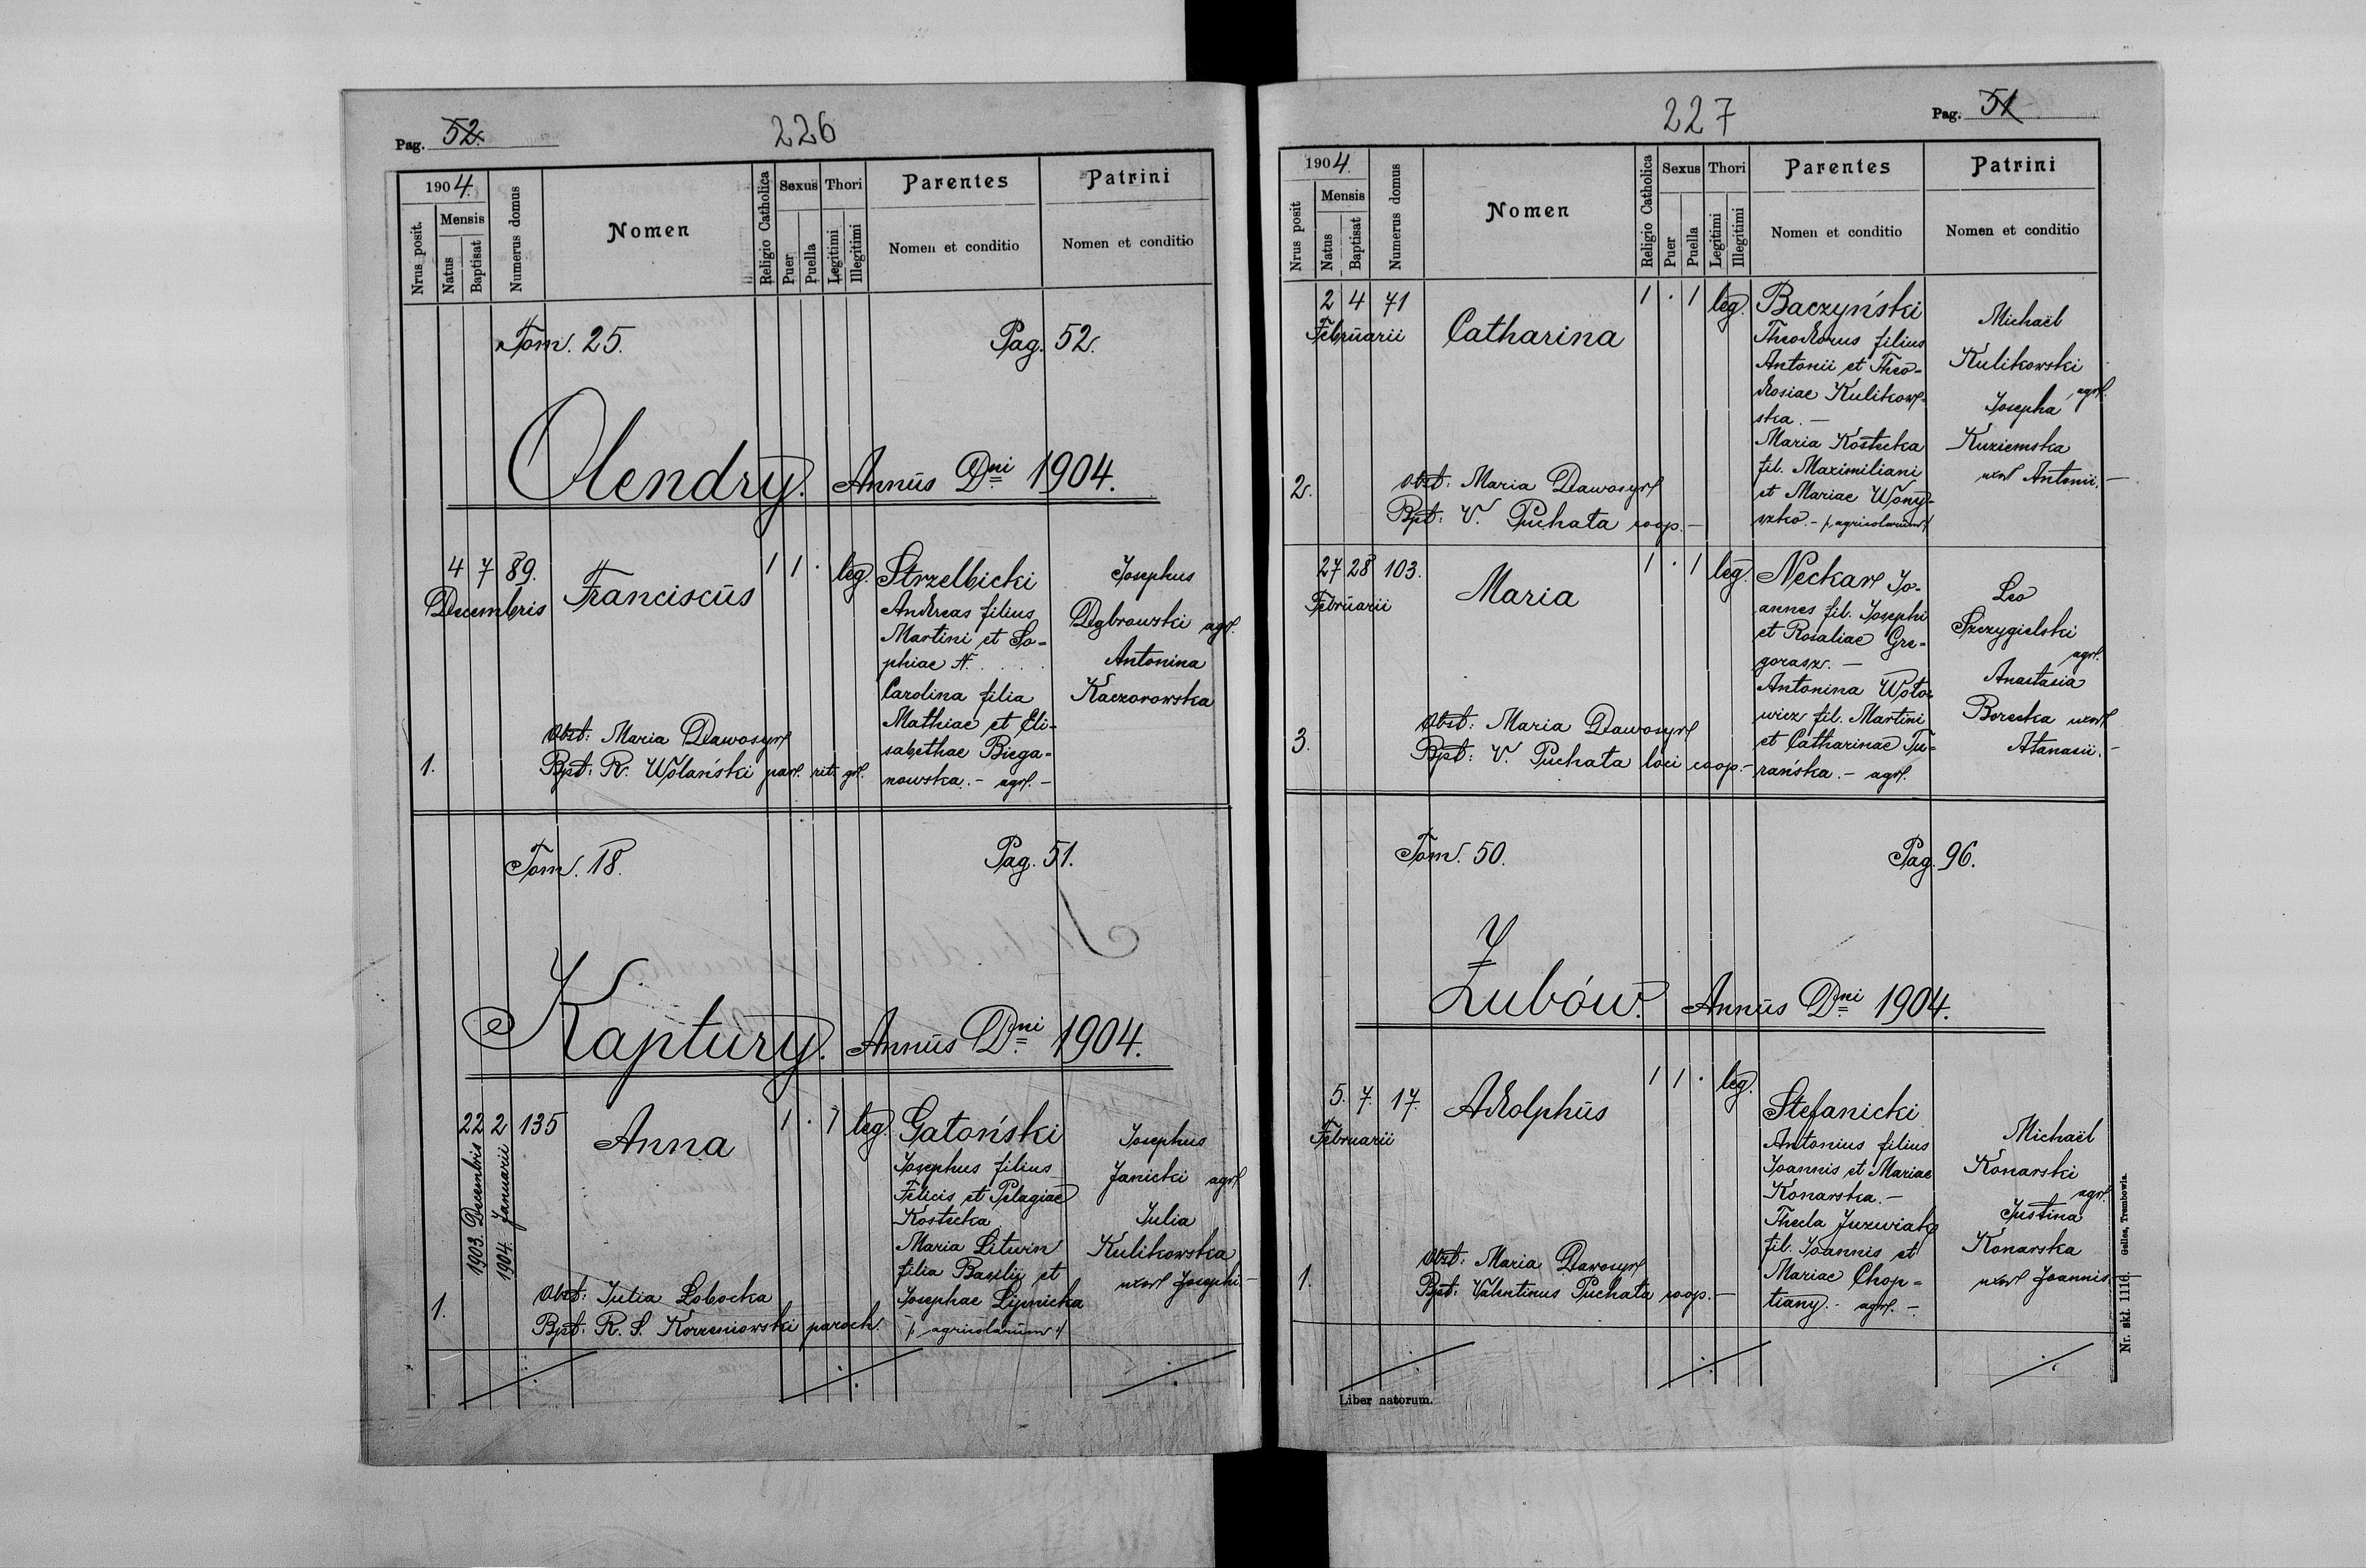 Pag. 52.
226
1904.
Nrus posit.
Mensis
Natus
Baptisat
Numerus domus
Nomen
Religio Catholica
Sexus
Puer
Puella
Thori
Legitimi
Illegitimi
Parentes
Nomen et conditio
Patrini
Nomen et conditio
Tom. 25. Pag. 52.
Olendry. Annus Dni 1904.
4 7 89. Franciscus 1 1 . leg. Strzelbicki
Decembris
Andreas filius
Martini et So-
phiae N. . . .
Carolina filia
Mathiae et Eli-
sabethae Biega-
nowska. - agr. -
Josephus
Dąbrowski agr.
Antonina
Kaczorowska
Obst: Maria Dawosyr
1. Bpt: R. Wolański par. rit. gr.
Tom. 18. Pag. 51.
Kaptury. Annus Dni 1904.
22 2 135 Anna 1 . 1 leg. Gatoński
1903. Decembris
1904. Januarii
Josephus filius
Felicis et Pelagiae
Kostecka
Maria Litwin
filia Basilii et
Josephae Lipnicka
/: agricolarum :/
Josephus
Janicki agr.
Julia
Kulikowska
uxor Josephi. -
Obst: Julia Łobocka
1. Bpt: R. S. Korzeniowski paroch.
227
Pag. 51
1904.
Nrus posit
Mensis
Natus
Baptisat
Numerus domus
Nomen
Religio Catholica
Sexus
Puer
Puella
Thori
Legitimi
Illegitimi
Parentes
Nomen et conditio
Patrini
Nomen et conditio
2 4 71 Catharina 1 . 1 leg. Baczyński
Februarii
Theodorus filius
Antonii et Theo-
dosiae Kulikow-
ska. -
Maria Kostecka
fil. Maximiliani
et Mariae Wony-
szko. - /: agricolarum :/
Michaël
Kulikowski
agr.
Josepha
Kuziemska
uxor Antonii. -
Obst: Maria Dawosyr
2. Bpt: V. Puchata coop. -
27 28 103. Maria 1 . 1 leg. Neckar Jo-
Februarii
annes fil. Josephi
et Rosaliae Gre-
gorasz. -
Antonina Woto-
wicz fil. Martini
et Catharinae Tu-
rańska. - agr.
Leo
Szczygielski
agr.
Anastasia
Borecka uxor
Atanasii. -
Obst: Maria Dawosyr
3. Bpt: V. Puchata loci coop. -
Tom. 50. Pag. 96.
Zubów. Annus Dni 1904.
5. 7. 17. Adolphus 1 1 . leg. Stefanicki
Februarii
Antonius filius
Joannis et Mariae
Konarska. -
Thecla Juzwiak
fil. Joannis et
Mariae Chop-
tiany. - agr. -
Michaël
Konarski
agr.
Justina
Konarska
uxor Joannis. -
Obst: Maria Dawosyr
1. Bpt: Valentinus Puchata coop. -
Liber natorum.
Nr. skł. 1116. Gelles, Trembowla.